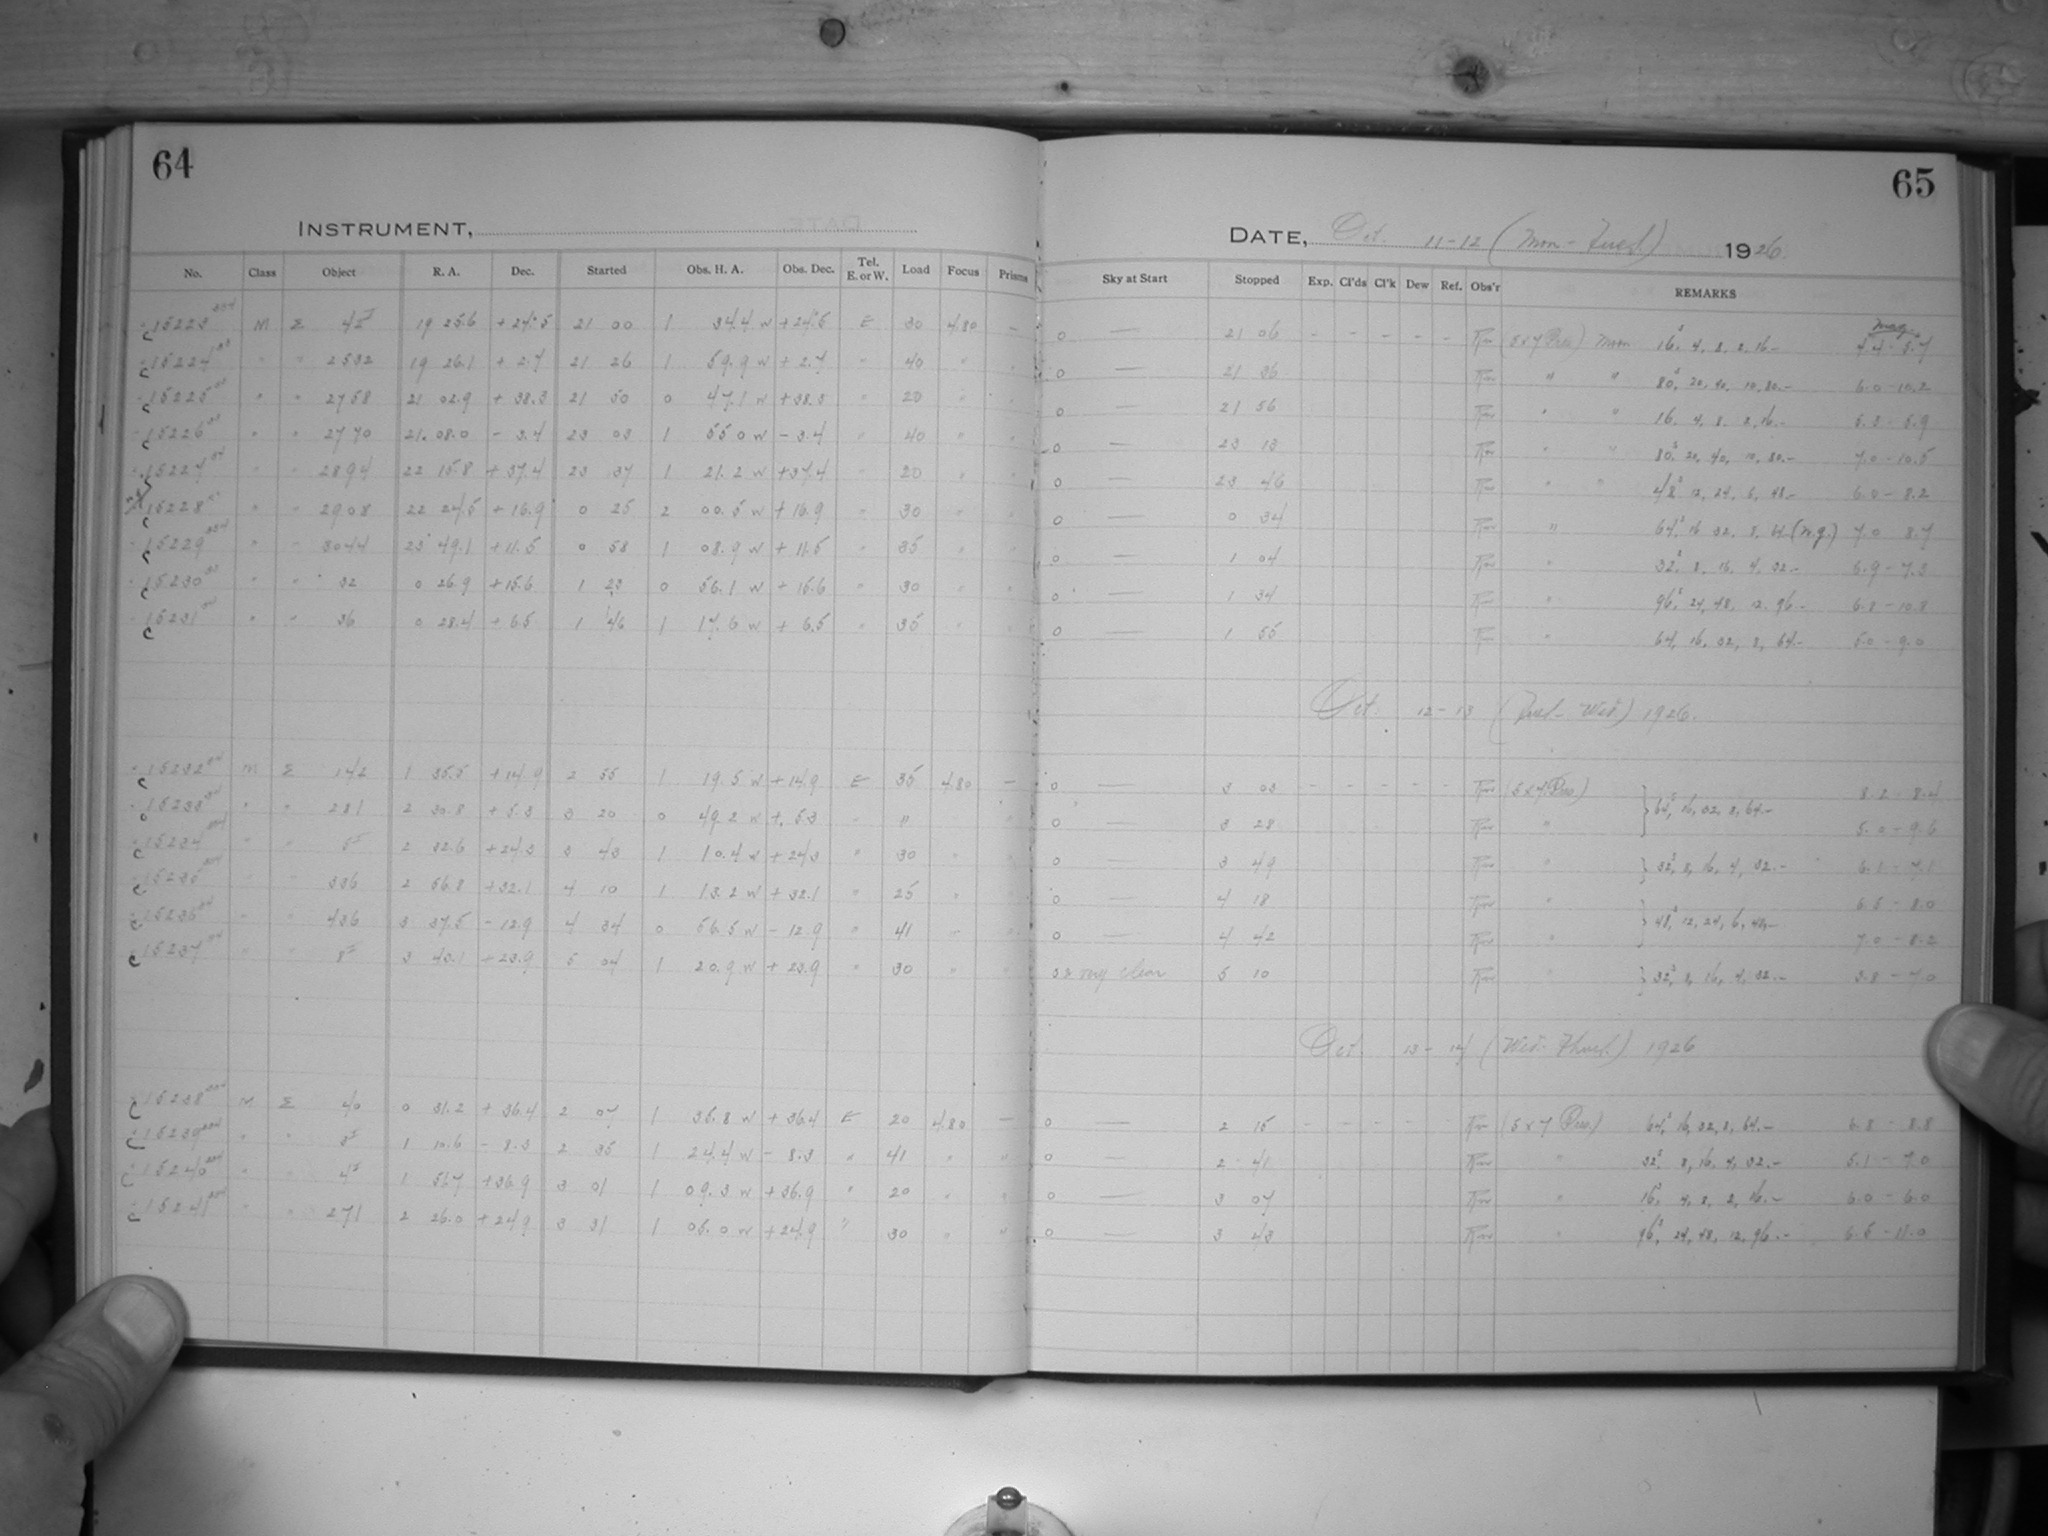 64
INSTRUMENT,
No. Class Object R. A. Dec. Started Obs. H. A. Obs. Dec. Tel. E. or W. Load Focus Prisms
15223 M Σ 19 25.6 + 24.5 21 00 1 34.4 W + 24.5 E 30 4.80 —
15224 " " 2532 19 26.1 + 2.7 21 26 1 59.9 W + 2.7 " 40 "
15225 " " 2758 21 02.9 + 38.3 21 50 0 47.1 W + 38.3 " 20 "
15226 " " 2770 21 08.0 - 3.4 23 03 1 55.0 W - 3.4 " 40 "
15227 " " 2894 22 15.8 + 37.4 23 37 1 21.2 W + 37.4 " 20 "
15228 " " 2908 22 24.5 + 16.9 0 25 2 00.5 W + 16.9 " 30 "
15229 " " 3044 23 49.1 + 11.5 0 58 1 08.9 W + 11.5 " 35 "
15230 " " 32 0 26.9 + 15.6 1 23 0 56.1 W + 15.6 " 30 "
15231 " " 36 0 28.4 + 6.5 1 46 1 17.6 W + 6.5 " 35 "
15232 M Σ 142 1 35.5 + 14.9 2 55 1 19.5 W + 14.9 E 35 4.80 —
15233 " " 281 2 30.8 + 5.3 3 20 0 49.2 W + 5.3 " "
15234 " " 2 32.6 + 24.3 3 43 1 10.4 W + 24.3 " 30 "
15235 " " 336 2 56.8 + 32.1 4 10 1 13.2 W + 32.1 " 25 "
15236 " " 436 3 37.5 - 12.9 4 34 0 56.5 W - 12.9 " 41 "
15237 " " 3 43.1 + 23.9 5 04 1 20.9 W + 23.9 " 30 "
15238 M Σ 40 0 31.2 + 36.4 2 07 1 35.8 W + 36.4 E 20 4.80 —
15239 " " 1 10.6 - 8.3 2 35 1 24.4 W - 8.3 " 41 " "
15240 " " 1 51.7 + 36.9 3 01 1 09.3 W + 36.9 " 20 " "
15241 " " 271 2 26.0 + 24.9 3 31 1 05.0 W + 24.9 " 30 " "
65
DATE, Oct. 11-12 (Mon-Tues.) 1926
Sky at Start Stopped Exp. Cl'ds Cl'k Dew Ref. Obs'r REMARKS
Mag.
0 — 21 06 - - - - - (5x7 Pres) Moon 16ˢ, 4, 8, 2, 16.- 4.4 - 5.7
0 — 21 36 " " 80ˢ, 20, 40, 10, 80.- 6.0 - 10.2
0 — 21 56 " " 16, 4, 8, 2, 16.- 5.9
0 — 23 13 " " 80ˢ, 20, 40, 10, 80.- 7.0 - 10.5
0 — 23 46 " " 48ˢ, 12, 24, 6, 48.- 6.0 - 8.2
0 — 0 34 " 64ˢ, 16, 32, 8, 64 (n.g.) 7.0 - 8.7
0 — 1 04 " 32ˢ, 8, 16, 4, 32.- 6.9 - 7.3
0 — 1 34 " 96ˢ, 24, 48, 12, 96.- 6.8 - 10.8
0 — 1 55 " 64, 16, 32, 8, 64.- 5.0 - 9.0
Oct. 12-13 (Tues.-Wed.) 1926.
0 — 3 03 - - - - - (5x7 Pres) 8.2 - 8.4
0 — 3 28 " } 64ˢ, 16, 32, 8, 64.- 5.0 - 9.6
0 — 3 49 " } 32ˢ, 8, 16, 4, 32.- 6.1 - 7.1
0 — 4 18 " 6.5 - 8.0
0 — 4 42 " } 48ˢ, 12, 24, 6, 48.- 7.0 - 8.2
very clear 5 10 } 32ˢ, 8, 16, 4, 32.- 3.8 - 7.0
Oct. 13-14 (Wed.-Thurs.) 1926
0 — 2 15 - - - - - (5x7 Pres.) 64ˢ, 16, 32, 8, 64.- 6.8 - 8.8
0 — 2 41 " 32ˢ, 8, 16, 4, 32.- 5.1 - 7.0
0 — 3 07 " 16ˢ, 4, 8, 2, 16.- 6.0 - 6.0
0 — 3 43 " 96ˢ, 24, 48, 12, 96.- 6.5 - 11.0